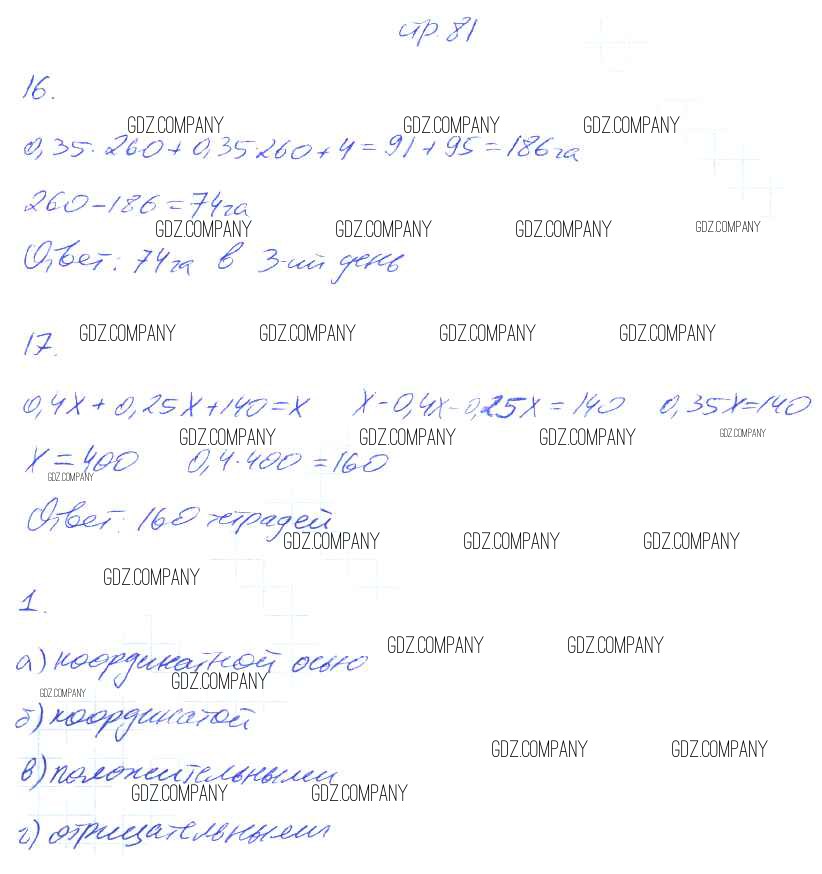 стр. 81
16.
GDZ.COMPANY GDZ.COMPANY GDZ.COMPANY
0,35·260+0,35·260+4=91+95=186га
260-186=74га
GDZ.COMPANY GDZ.COMPANY GDZ.COMPANY GDZ.COMPANY
Ответ: 74га в 3-ий день
17. GDZ.COMPANY GDZ.COMPANY GDZ.COMPANY GDZ.COMPANY
0,4x+0,25x+140=x x-0,4x-0,25x=140 0,35x=140
GDZ.COMPANY GDZ.COMPANY GDZ.COMPANY GDZ.COMPANY
x=400 0,4·400=160
GDZ.COMPANY
Ответ: 160 тетрадей
GDZ.COMPANY GDZ.COMPANY GDZ.COMPANY
GDZ.COMPANY
1.
GDZ.COMPANY GDZ.COMPANY
а) координатной осью
GDZ.COMPANY
GDZ.COMPANY
б) координатой
GDZ.COMPANY GDZ.COMPANY
в) положительными
GDZ.COMPANY GDZ.COMPANY
г) отрицательными